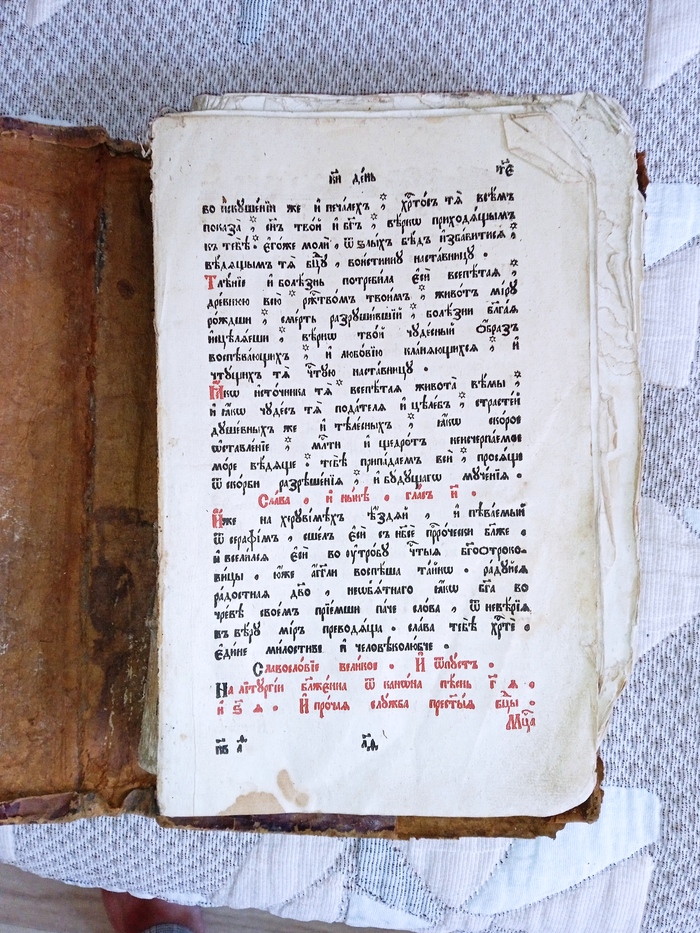 к҃и де́нь т҃ч҃є
во и҆скꙋше́нїи же и҆ печа́лехъ ҂ хрⷭ҇то́съ тѧ̀ всѣ́мъ
показа̀ ҂ сн҃ъ тво́й и҆ бг҃ъ ҂ вѣ́рѡ приходѧ́щымъ
къ тебѣ̀ є҆го́же молѝ , ѿ ѕлы́хъ бѣ́дъ и҆зба́витисѧ ҂
вѣ́дѧщымъ тѧ̀ бцⷣꙋ , вои́стиннꙋ наста́вницꙋ .
Тлѣ́нїе и҆ болѣ́знь потреби́ла є҆сѝ всепѣ́таѧ ҂
дре́внюю всю̀ ржⷭ҇тво́мъ твои́мъ ҂ живо́тъ мі́рꙋ
ро́ждши ҂ сме́рть разрꙋши́вшїй ҂ болѣ́зни блг҃а́ѧ
и҆сцѣлѧ́еши ҂ вѣ́рѡ тво́й чꙋде́сный ѻ҆́бразъ
воспѣва́ющихъ ҂ и҆ любо́вїю кла́нѧющихсѧ ҂ и҆
чтꙋ́щихъ тѧ̀ чⷭ҇тꙋю наста́вницꙋ .
Ꙗ҆́кѡ и҆сто́чника тѧ̀ всепѣ́таѧ живота̀ вѣ́мы ҂
и҆ ꙗ҆́кѡ чꙋде́съ тѧ̀ пода́телѧ и҆ цѣле́бъ ҂ страсте́й
дꙋше́вныхъ же и҆ тѣле́сныхъ ҂ ꙗ҆́кѡ ско́рое
ѡ҆ставле́нїе ҂ млⷭ҇ти и҆ щедро́тъ неисчерпа́емое
мо́ре вѣ́дѧще . тебѣ̀ припа́даемъ всѝ ҂ просѧ́ще
ѿ ско́рби разрѣше́нїѧ ҂ и҆ бꙋ́дꙋщагѡ мꙋче́нїѧ .
Сла́ва . и҆ ны́нѣ . гла́съ и҃ .
И҆́же на херꙋві́мѣхъ ѣ҆́здѧй , и҆ пѣва́емый
ѿ серафі́мъ , сше́лъ є҆сѝ съ нб҃сѐ прⷪ҇ро́чески бж҃е .
и҆ всели́лсѧ є҆сѝ во ᲂу҆тро́бꙋ чⷭ҇тыѧ бг҃оотроко-
ви́цы . ю҆́же а҆́гг҃ли воспѣ́ша та́йнѡ . ра́дꙋйсѧ
ра́достнаѧ дв҃о , неѡб̾ѧ́тнаго ꙗ҆́кѡ бг҃а во
чре́вѣ свое́мъ прїе́мши па́че сло́ва , ѿ невѣ́рїѧ
въ вѣ́рꙋ мі́ръ преводѧ́ща . сла́ва тебѣ̀ хрⷭ҇тѐ .
є҆ди́не ми́лостиве и҆ человѣколю́бче .
Славосло́вїе вели́кое . И҆ ѿпꙋ́стъ .
На лїтꙋргі́и бл҃же́нна ѿ канѡ́на пѣ́снь г҃ ѧ .
и҆ ѕ҃ ѧ . И҆ про́чаѧ слꙋ́жба прест҃ы́ѧ бцⷣы .
Мцⷭ҇а